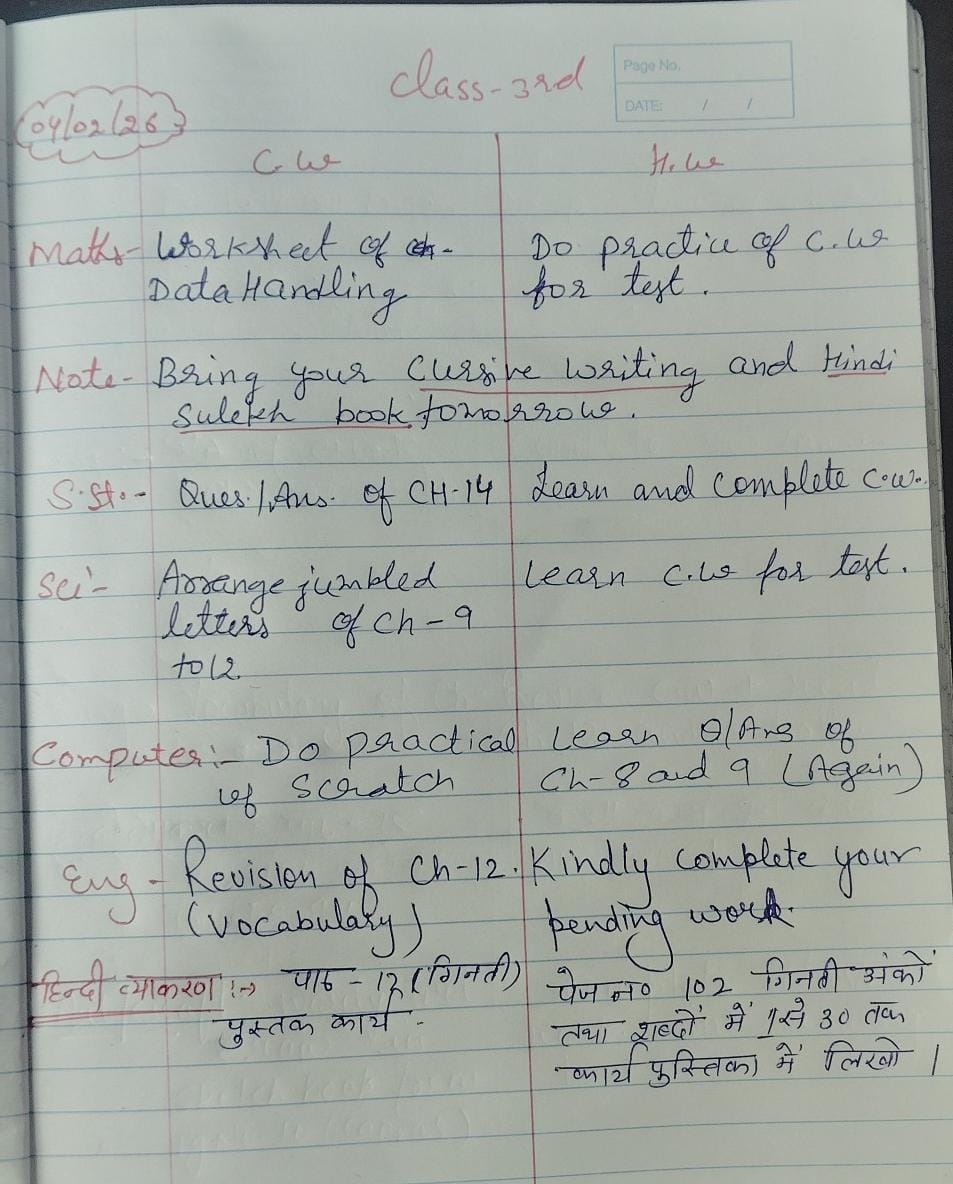 Class-3rd
Page No.
DATE: / /
04/02/26
C.W H.W
Maths- Worksheet of ch- Do practice of C.W
Data Handling for test.
Note- Bring your Cursive writing and Hindi
Sulekh book tomorrow.
S.St.- Ques./Ans. of CH-14 Learn and complete c.w.
Sci- Arrange jumbled Learn C.W for test.
letters of Ch-9
to 12.
Computer:- Do practical Learn Q/Ans of
of Scratch Ch-8 and 9 (Again)
Eng- Revision of Ch-12. Kindly complete your
(Vocabulary) pending work.
हिन्दी व्याकरण :-> पाठ - 12 (गिनती) पेज न० 102 गिनती अंकों
पुस्तक कार्य - तथा शब्दों में 1से 30 तक
कार्य पुस्तिका में लिखो ।